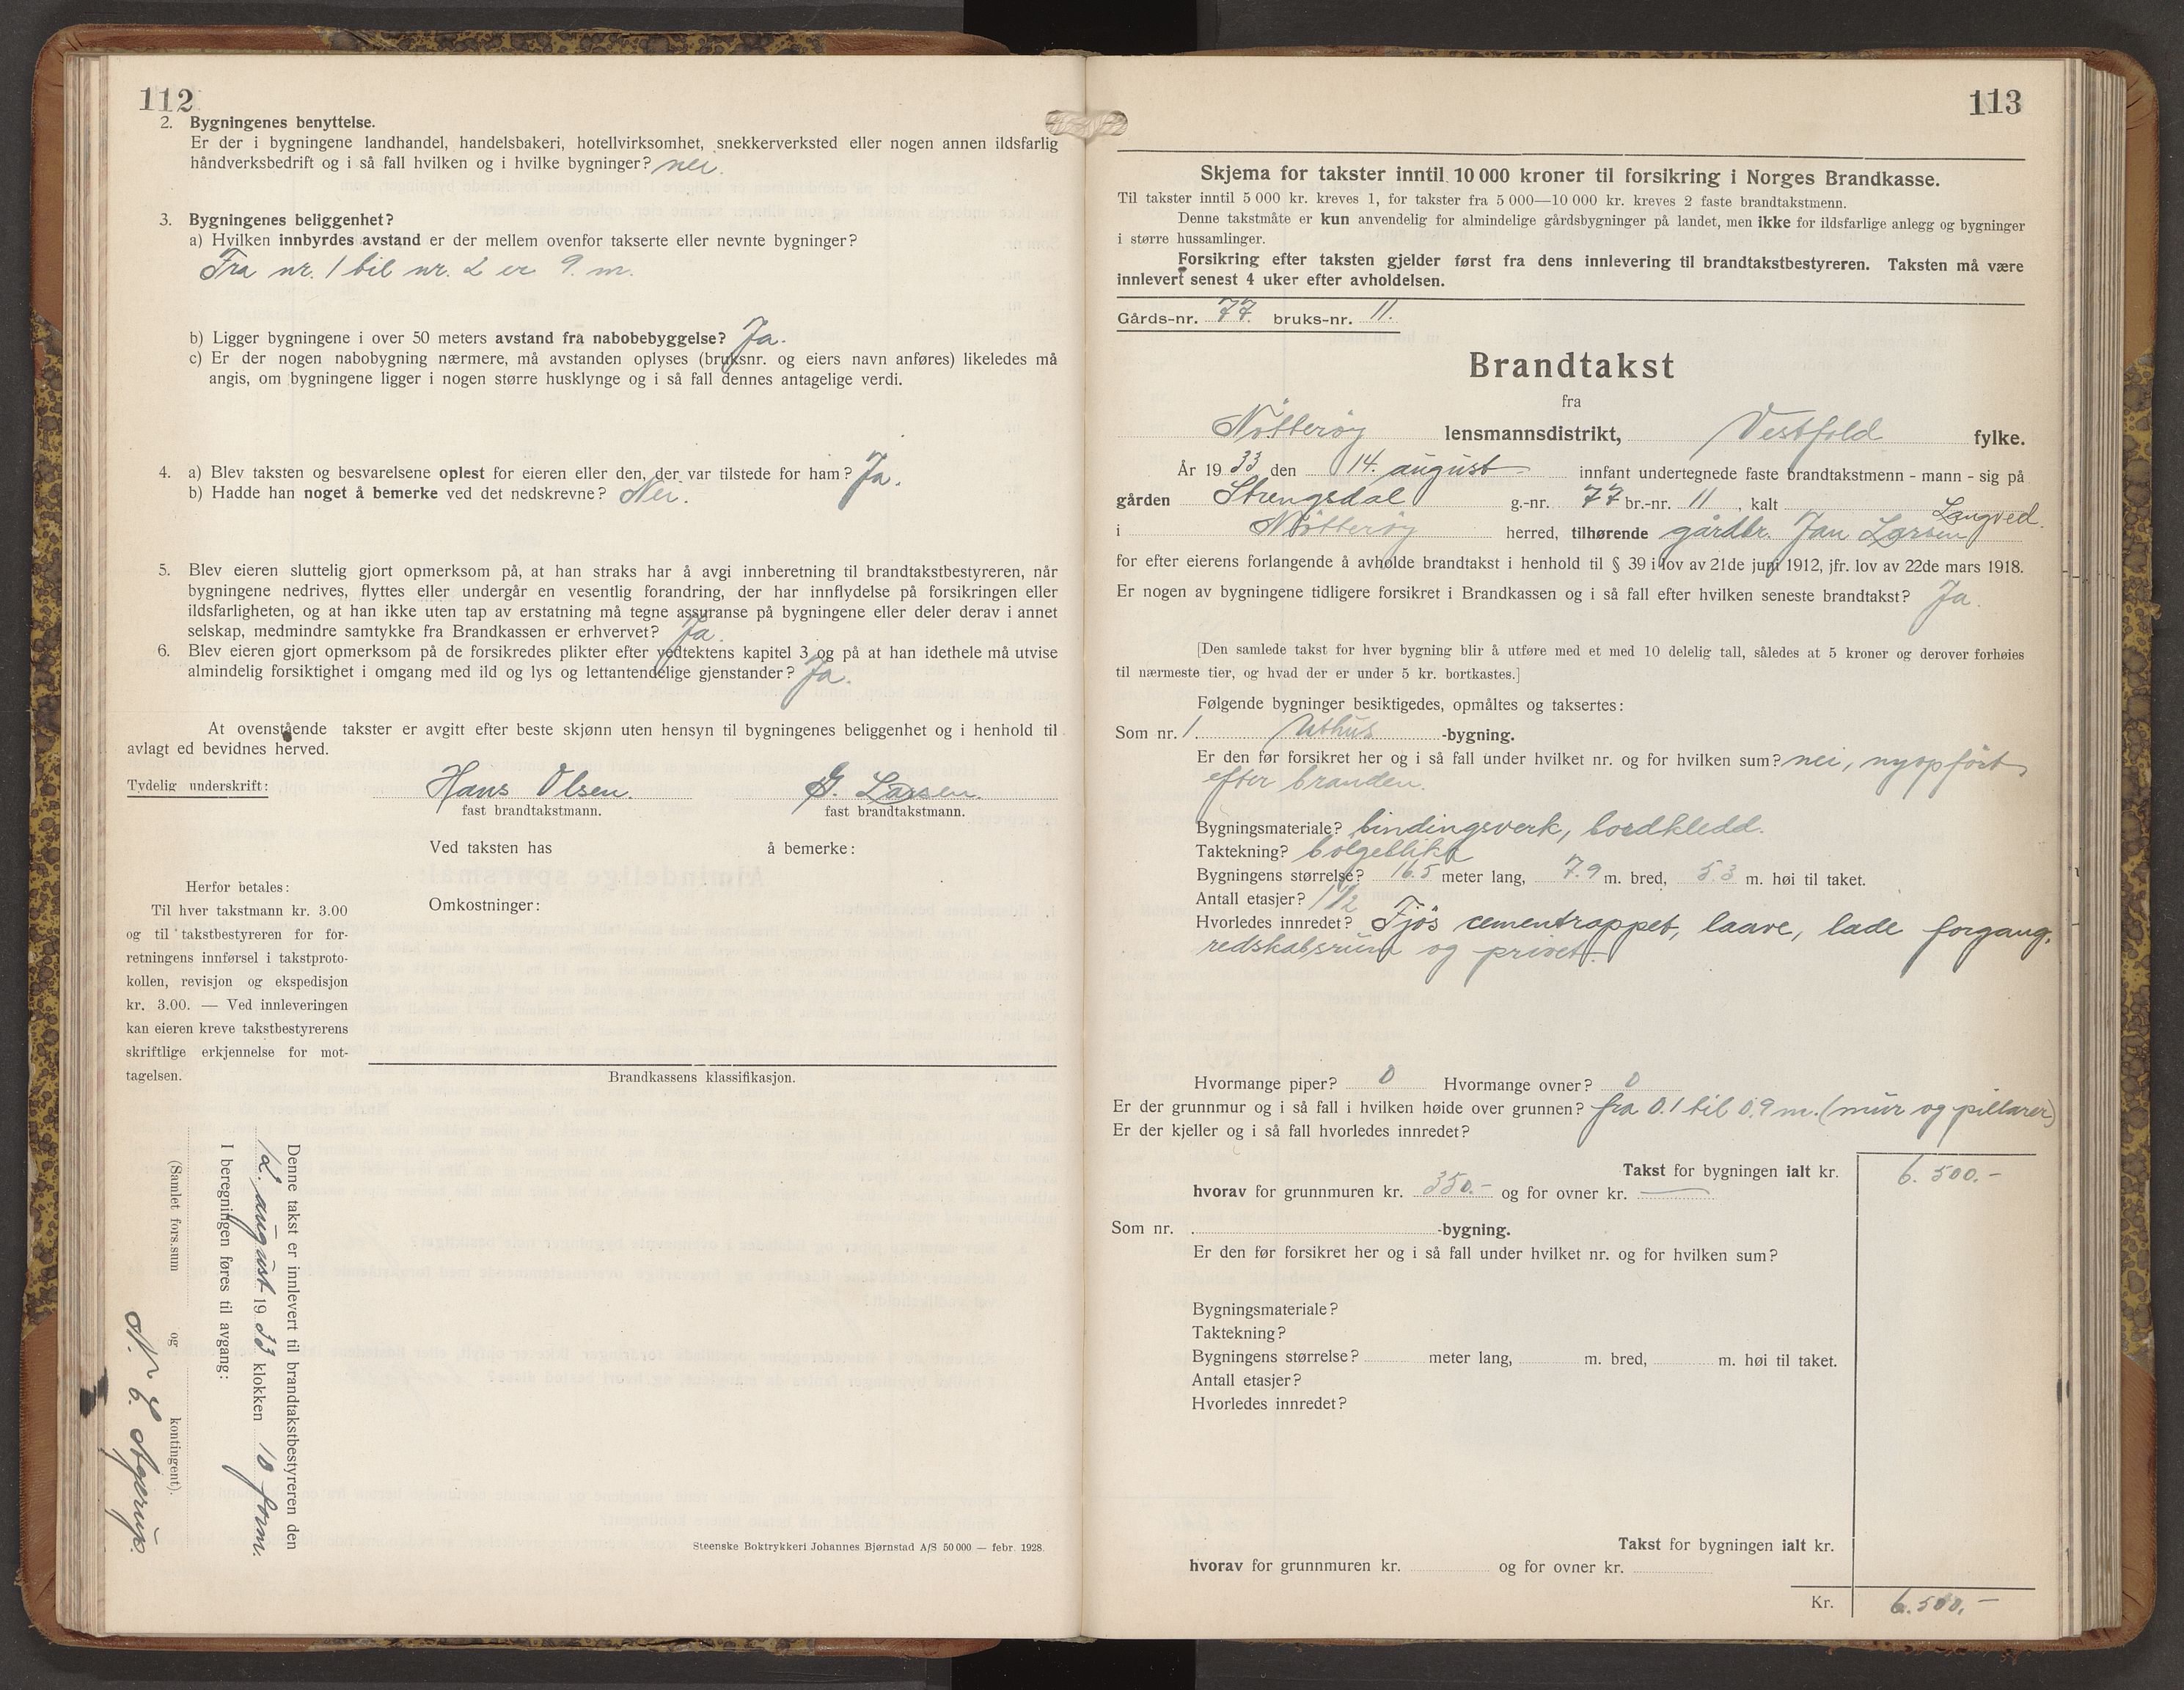 112
2. Bygningenes benyttelse.
Er der i bygningene landhandel, handelsbakeri, hotellvirksomhet, snekkerverksted eller nogen annen ildsfarlig
håndverksbedrift og i så fall hvilken og i hvilke bygninger? nei.
3. Bygningenes beliggenhet?
a) Hvilken innbyrdes avstand er der mellem ovenfor takserte eller nevnte bygninger?
Fra nr. 1 til nr. 2 er 9. m.
b) Ligger bygningene i over 50 meters avstand fra nabobebyggelse? Ja.
c) Er der nogen nabobygning nærmere, må avstanden oplyses (bruksnr. og eiers navn anføres) likeledes må
angis, om bygningene ligger i nogen større husklynge og i så fall dennes antagelige verdi.
4. a) Blev taksten og besvarelsene oplest for eieren eller den, der var tilstede for ham? Ja.
b) Hadde han noget å bemerke ved det nedskrevne? Nei.
5. Blev eieren sluttelig gjort opmerksom på, at han straks har å avgi innberetning til brandtakstbestyreren, når
bygningene nedrives, flyttes eller undergår en vesentlig forandring, der har innflydelse på forsikringen eller
ildsfarligheten, og at han ikke uten tap av erstatning må tegne assuranse på bygningene eller deler derav i annet
selskap, medmindre samtykke fra Brandkassen er erhvervet? Ja.
6. Blev eieren gjort opmerksom på de forsikredes plikter efter vedtektens kapitel 3 og på at han idethele må utvise
almindelig forsiktighet i omgang med ild og lys og lettantendelige gjenstander? Ja.
At ovenstående takster er avgitt efter beste skjønn uten hensyn til bygningenes beliggenhet og i henhold til
avlagt ed bevidnes herved.
Tydelig underskrift: Hans Olsen. G. Larsen.
fast brandtakstmann. fast brandtakstmann.
Ved taksten has å bemerke:
Omkostninger:
Herfor betales:
Til hver takstmann kr. 3.00
og til takstbestyreren for for-
retningens innførsel i takstproto-
kollen, revisjon og ekspedisjon
kr. 3.00. — Ved innleveringen
kan eieren kreve takstbestyrerens
skriftlige erkjennelse for mot-
tagelsen.
Brandkassens klassifikasjon.
Denne takst er innlevert til brandtakstbestyreren den
12. august 1933 klokken 10 form.
I beregningen føres til avgang:
(Samlet fors.sum og kontingent).
Steenske Boktrykkeri Johannes Bjørnstad A/S 50 000 — febr. 1928.
113
Skjema for takster inntil 10 000 kroner til forsikring i Norges Brandkasse.
Til takster inntil 5 000 kr. kreves 1, for takster fra 5 000—10 000 kr. kreves 2 faste brandtakstmenn.
Denne takstmåte er kun anvendelig for almindelige gårdsbygninger på landet, men ikke for ildsfarlige anlegg og bygninger
i større hussamlinger.
Forsikring efter taksten gjelder først fra dens innlevering til brandtakstbestyreren. Taksten må være
innlevert senest 4 uker efter avholdelsen.
Gårds-nr. 77. bruks-nr. 11.
Brandtakst
fra
Nøtterøy lensmannsdistrikt, Vestfold fylke.
År 1933 den 14. august innfant undertegnede faste brandtakstmenn - mann - sig på
gården Strengsdal g.-nr. 77 br.-nr. 11, kalt Langved.
i Nøtterøy herred, tilhørende gårdbr. Jan Larsen
for efter eierens forlangende å avholde brandtakst i henhold til § 39 i lov av 21de juni 1912, jfr. lov av 22de mars 1918.
Er nogen av bygningene tidligere forsikret i Brandkassen og i så fall efter hvilken seneste brandtakst? Ja.
[Den samlede takst for hver bygning blir å utføre med et med 10 delelig tall, således at 5 kroner og derover forhøies
til nærmeste tier, og hvad der er under 5 kr. bortkastes.]
Følgende bygninger besiktigedes, opmåltes og taksertes:
Som nr. 1. Uthus -bygning.
Er den før forsikret her og i så fall under hvilket nr. og for hvilken sum? nei, nyopført
efter branden.
Bygningsmateriale? bindingsverk, bordkledd.
Taktekning? bølgeblikk
Bygningens størrelse? 16.5 meter lang, 7.9 m. bred, 5.3 m. høi til taket.
Antall etasjer? 1 1/2
Hvorledes innredet? Fjøs cementrappet, laave, lade forgang,
redskabsrum og privet.
Hvormange piper? 0 Hvormange ovner? 0
Er der grunnmur og i så fall i hvilken høide over grunnen? fra 0.1 til 0.9 m. (mur og pillarer)
Er der kjeller og i så fall hvorledes innredet?
Takst for bygningen ialt kr. 6.500.-
hvorav for grunnmuren kr. 350.- og for ovner kr. —
Som nr. -bygning.
Er den før forsikret her og i så fall under hvilket nr. og for hvilken sum?
Bygningsmateriale?
Taktekning?
Bygningens størrelse? meter lang, m. bred, m. høi til taket.
Antall etasjer?
Hvorledes innredet?
Takst for bygningen ialt kr.
hvorav for grunnmuren kr. og for ovner kr.
Kr. 6.500.-